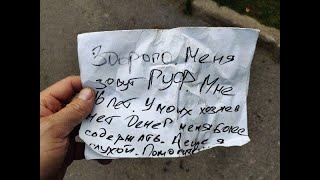 Здорово. Меня
зовут Руф. Мне
лет. У моих хозяев
нет денег меня более
содержать. А еще я
глухой.